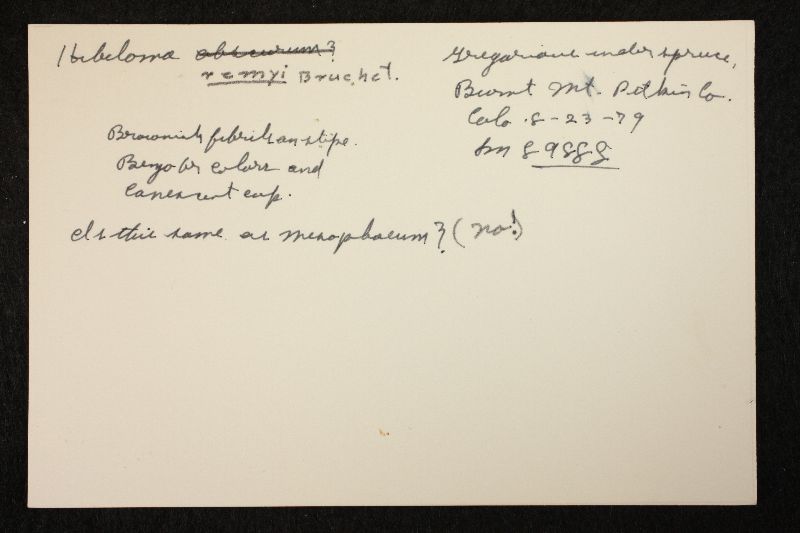 Hebeloma obscurum?
remyi Bruchet.
Gregarious under spruce,
Burnt Mt. Pitkin Co.
Colo. 8-23-79
Sm 89888
Brownish fibrils on stipe.
colors and
canescent cap.
Is this same as mesophaeum? (no!)